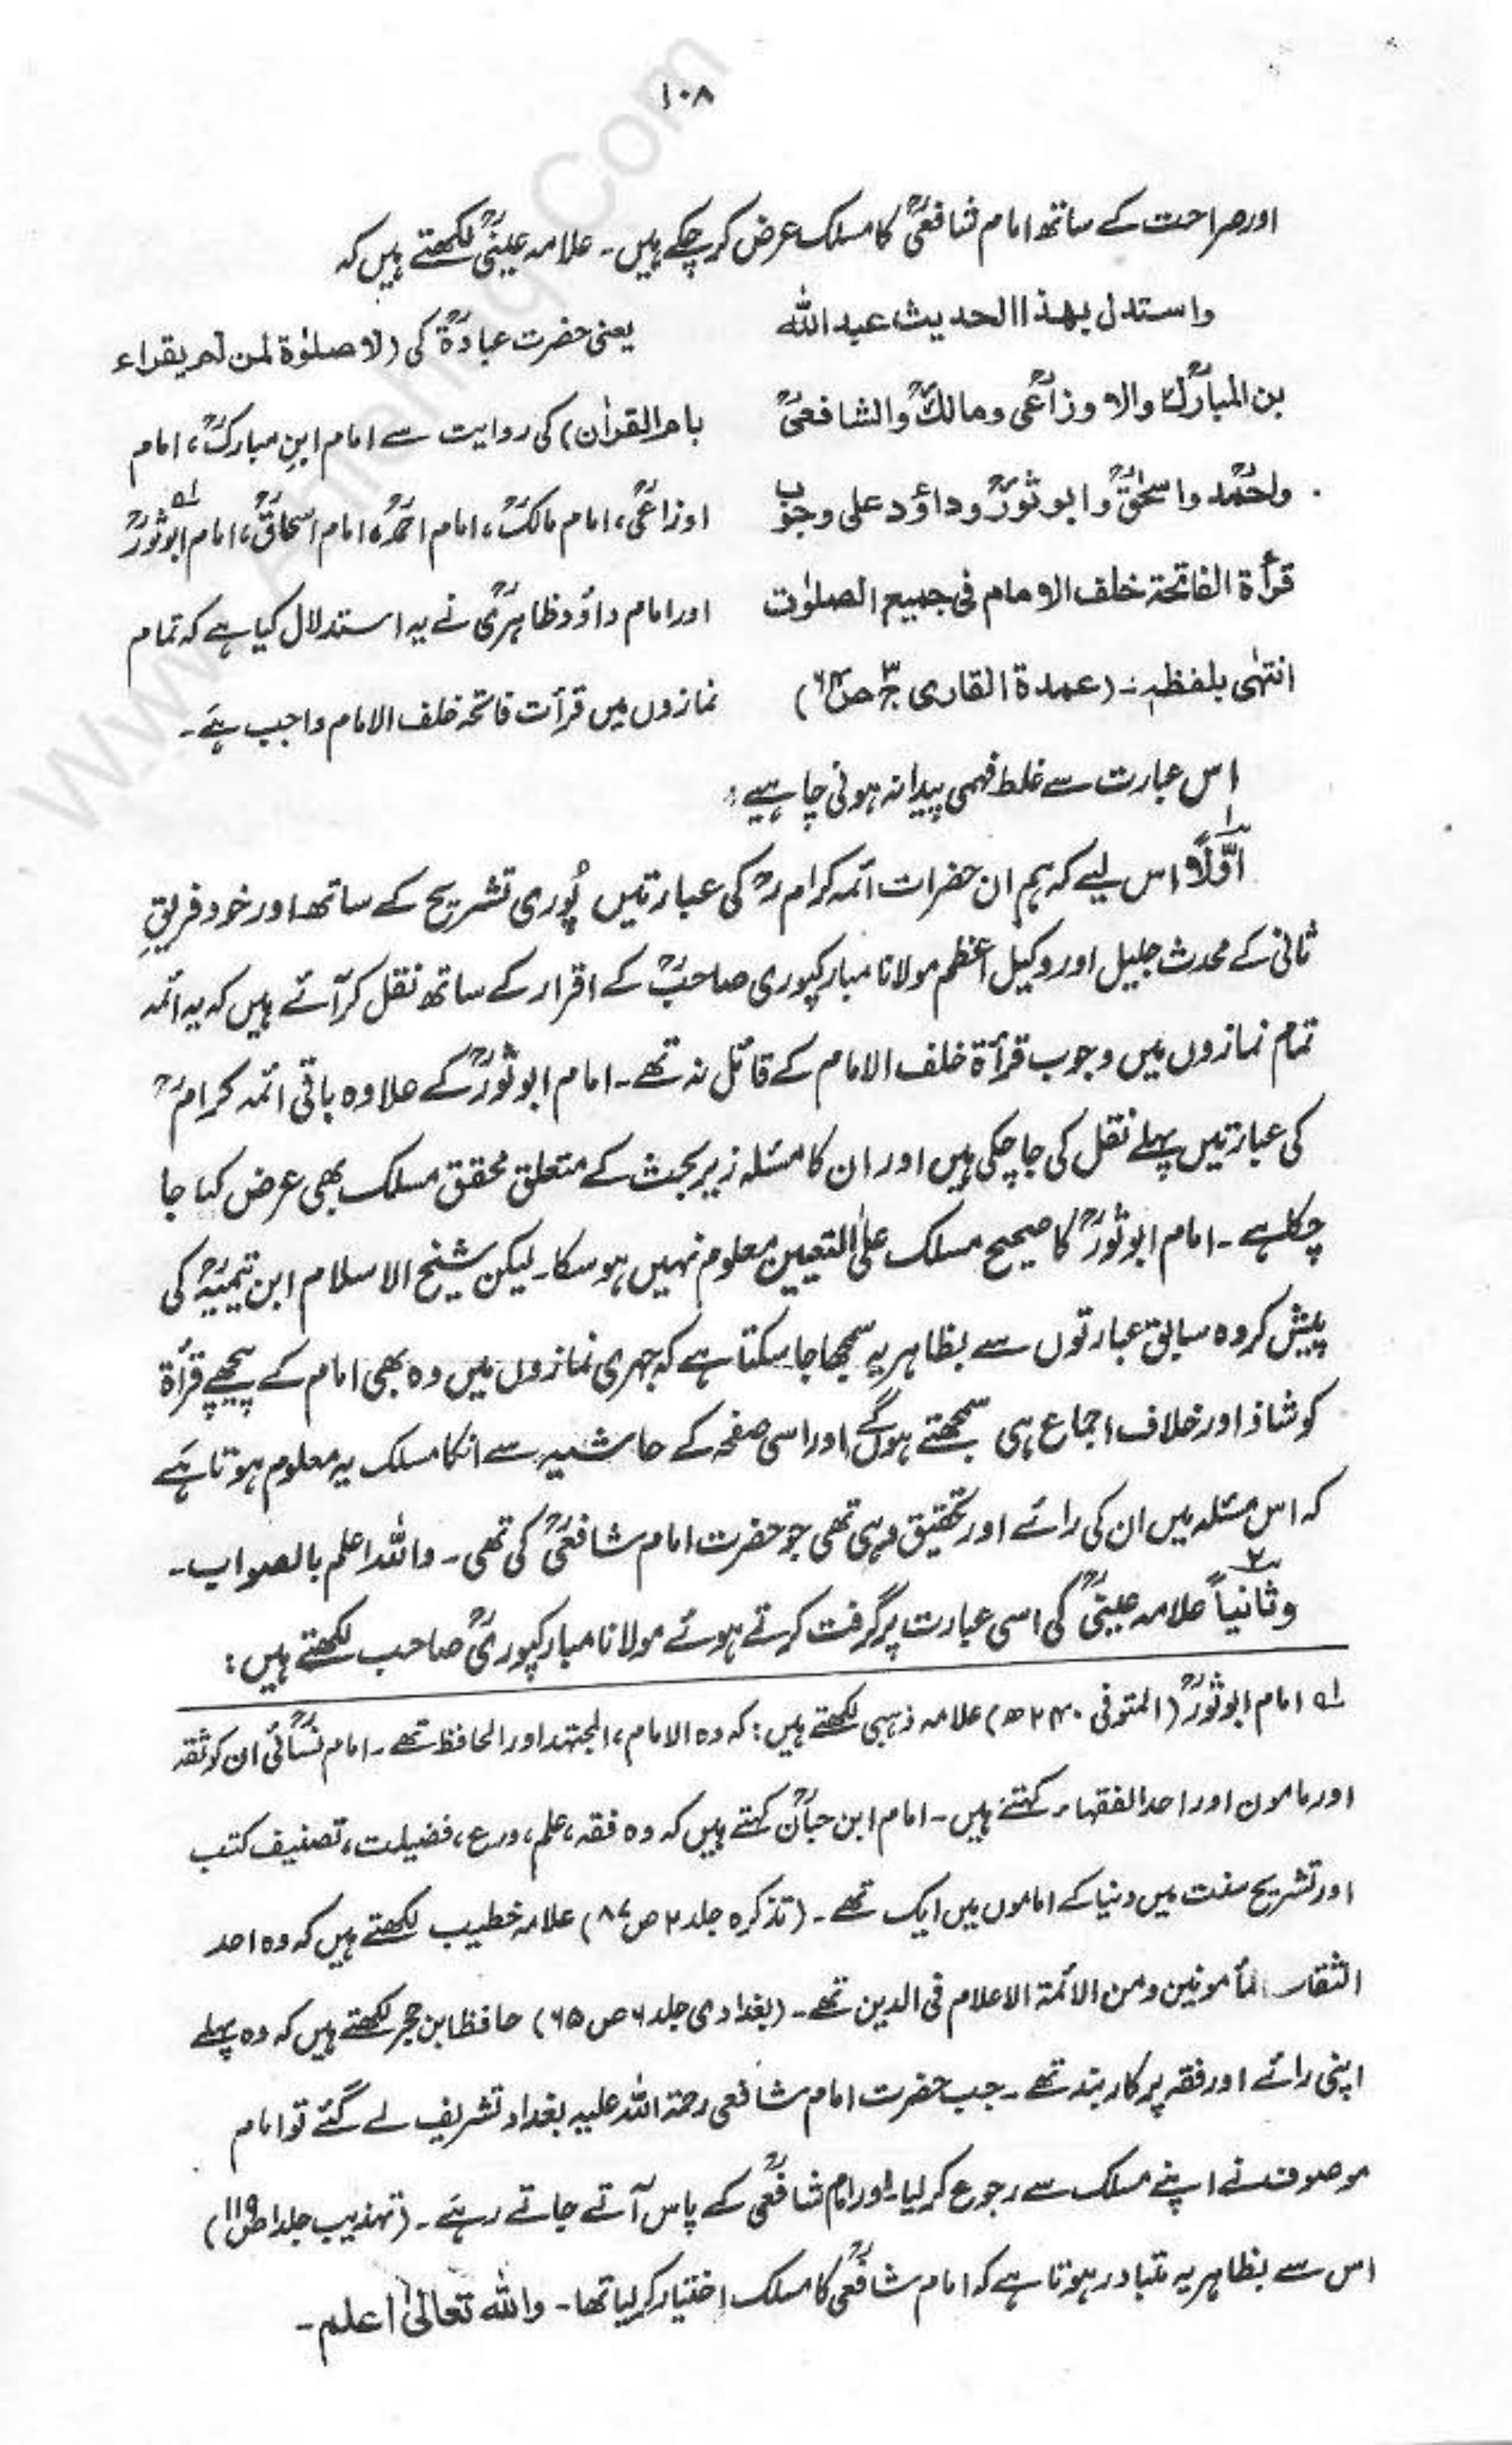 ۱۰۸
اور صراحت کے ساتھ امام شافعیؒ کا مسلک عرض کر چکے ہیں۔ علامہ عینیؒ لکھتے ہیں کہ
واستدل بهذا الحديث عبد الله
بن المبارکؒ والاوزاعیؒ ومالکؒ والشافعیؒ
واحمدؒ واسحٰقؒ وابو ثورؒ وداؤد علی وجوب
قرأة الفاتحة خلف الامام فی جمیع الصلوٰت
انتہٰی بلفظہٖ۔ (عمدة القاری ج۳ ص۶۴)
یعنی حضرت عبادہؓ کی (لا صلوٰة لمن لم یقراء
بام القراٰن) کی روایت سے امام ابنِ مبارکؒ، امام
اوزاعیؒ، امام مالکؒ، امام احمدؒ، امام اسحاقؒ، امام ابو ثورؒ ؎۱
اور امام داؤد ظاہریؒ نے یہ استدلال کیا ہے کہ تمام
نمازوں میں قرأت فاتحہ خلف الامام واجب ہے۔
اس عبارت سے غلط فہمی پیدا نہ ہونی چاہیے:
اوّلاً اس لیے کہ ہم ان حضرات ائمہ کرامؒ کی عبارتیں پُوری تشریح کے ساتھ اور خود فریقِ
ثانی کے محدث جلیل اور وکیل اعظم مولانا مبارکپوری صاحبؒ کے اقرار کے ساتھ نقل کر آئے ہیں کہ یہ ائمہ
تمام نمازوں میں وجوب قرأۃ خلف الامام کے قائل نہ تھے۔ امام ابو ثورؒ کے علاوہ باقی ائمہ کرامؒ
کی عبارتیں پہلے نقل کی جا چکی ہیں اور ان کا مسئلہ زیر بحث کے متعلق محقق مسلک بھی عرض کیا جا
چکا ہے۔ امام ابو ثورؒ کا صحیح مسلک علی التعیین معلوم نہیں ہو سکا۔ لیکن شیخ الاسلام ابن تیمیہؒ کی
پیش کردہ سابق عبارتوں سے بظاہر یہ سمجھا جا سکتا ہے کہ جہری نمازوں میں وہ بھی امام کے پیچھے قرأۃ
کو شاذ اور خلاف اجماع ہی سمجھتے ہوں گے اور اسی صفحہ کے حاشیہ سے انکا مسلک یہ معلوم ہوتا ہے
کہ اس مسئلہ میں ان کی رائے اور تحقیق وہی تھی جو حضرت امام شافعیؒ کی تھی۔ واللہ اعلم بالصواب۔
وثانیاً علامہ عینیؒ کی اسی عبارت پر گرفت کرتے ہوئے مولانا مبارکپوریؒ صاحب لکھتے ہیں:
؎۱ امام ابو ثورؒ (المتوفی ۲۴۰ھ) علامہ ذہبی لکھتے ہیں: کہ وہ الامام، المجتہد اور الحافظ تھے۔ امام نسائیؒ ان کو ثقہ
اور مامون اور احد الفقہاء کہتے ہیں۔ امام ابن حبانؒ کہتے ہیں کہ وہ فقہ، علم، ورع، فضیلت، تصنیف کتب
اور تشریح سنت میں دنیا کے اماموں میں ایک تھے۔ (تذکرہ جلد ۲ ص ۸۷) علامہ خطیب لکھتے ہیں کہ وہ احد
الثقات المأمونین ومن الائمة الاعلام فی الدین تھے۔ (بغدادی جلد ۶ ص ۶۵) حافظ ابن حجر لکھتے ہیں کہ وہ پہلے
اپنی رائے اور فقہ پر کاربند تھے۔ جب حضرت امام شافعی رحمۃ اللہ علیہ بغداد تشریف لے گئے تو امام
موصوف نے اپنے مسلک سے رجوع کر لیا۔ اور امام شافعیؒ کے پاس آتے جاتے رہے۔ (تہذیب جلد ۱ ص ۱۱۹)
اس سے بظاہر یہ متبادر ہوتا ہے کہ امام شافعیؒ کا مسلک اختیار کر لیا تھا۔ واللہ تعالیٰ اعلم۔